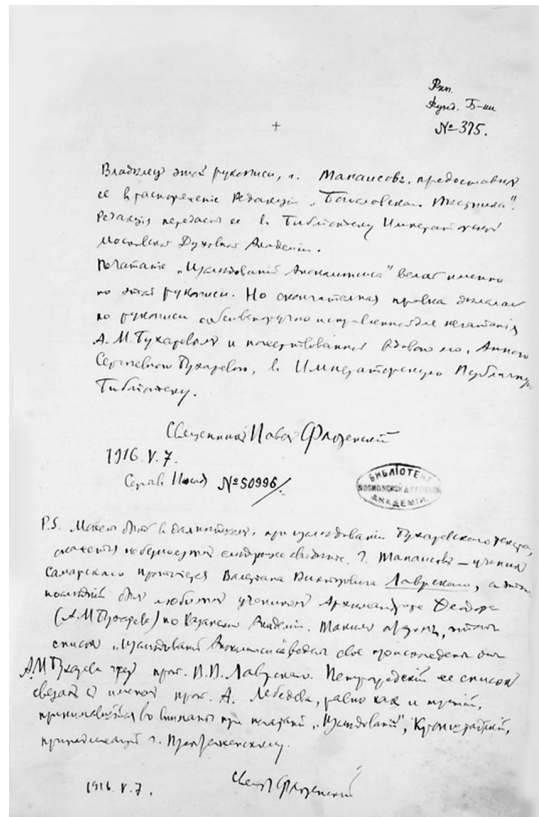 Ркп.
Фунд. Б-ки
№ 375.
Владелец этой рукописи, г. предоставил
ее в распоряжение Редакции „Богословскаго Вестника“.
Редакция передает ее в Библиотеку Императорской
Московской Духовной Академии.
Печатание „Изследований Апокалипсиса“ велось именно
по этой рукописи. Но окончательная правка делалась
по рукописи собственноручно исправленной для печатания
А. М. Бухаревым и пожертвованной вдовою его, Анною
Сергеевною Бухаревою, в Императорскую Публичную
Библиотеку.
Священник Павел Флоренский
1916. V. 7.
Сергиев Посад № 50996/
БИБЛІОТЕКА
МОСКОВСКОЙ ДУХОВНОЙ
АКАДЕМІИ
P.S. Может быть в дальнейшем, при изследовании Бухаревского текста,
окажется небезполезным следующее сведение. Г. — ученик
Самарского протоиерея Валериана Викторовича Лаврского, а
последний был любимым учеником Архимандрита Феодора
(А. М. Бухарева) по Казанской Академии. Таким образом, этот
список „Изследований Апокалипсиса“ ведет свое происхождение от
А. М. Бухарева чрез прот. В. В. Лаврского. же список
связан с именем прот. А. Лебедева, равно как и третий,
принимавшийся во внимание при печатании „Изследований“,
принадлежащий г. Преображенскому.
1916. V. 7. Свящ. Флоренский